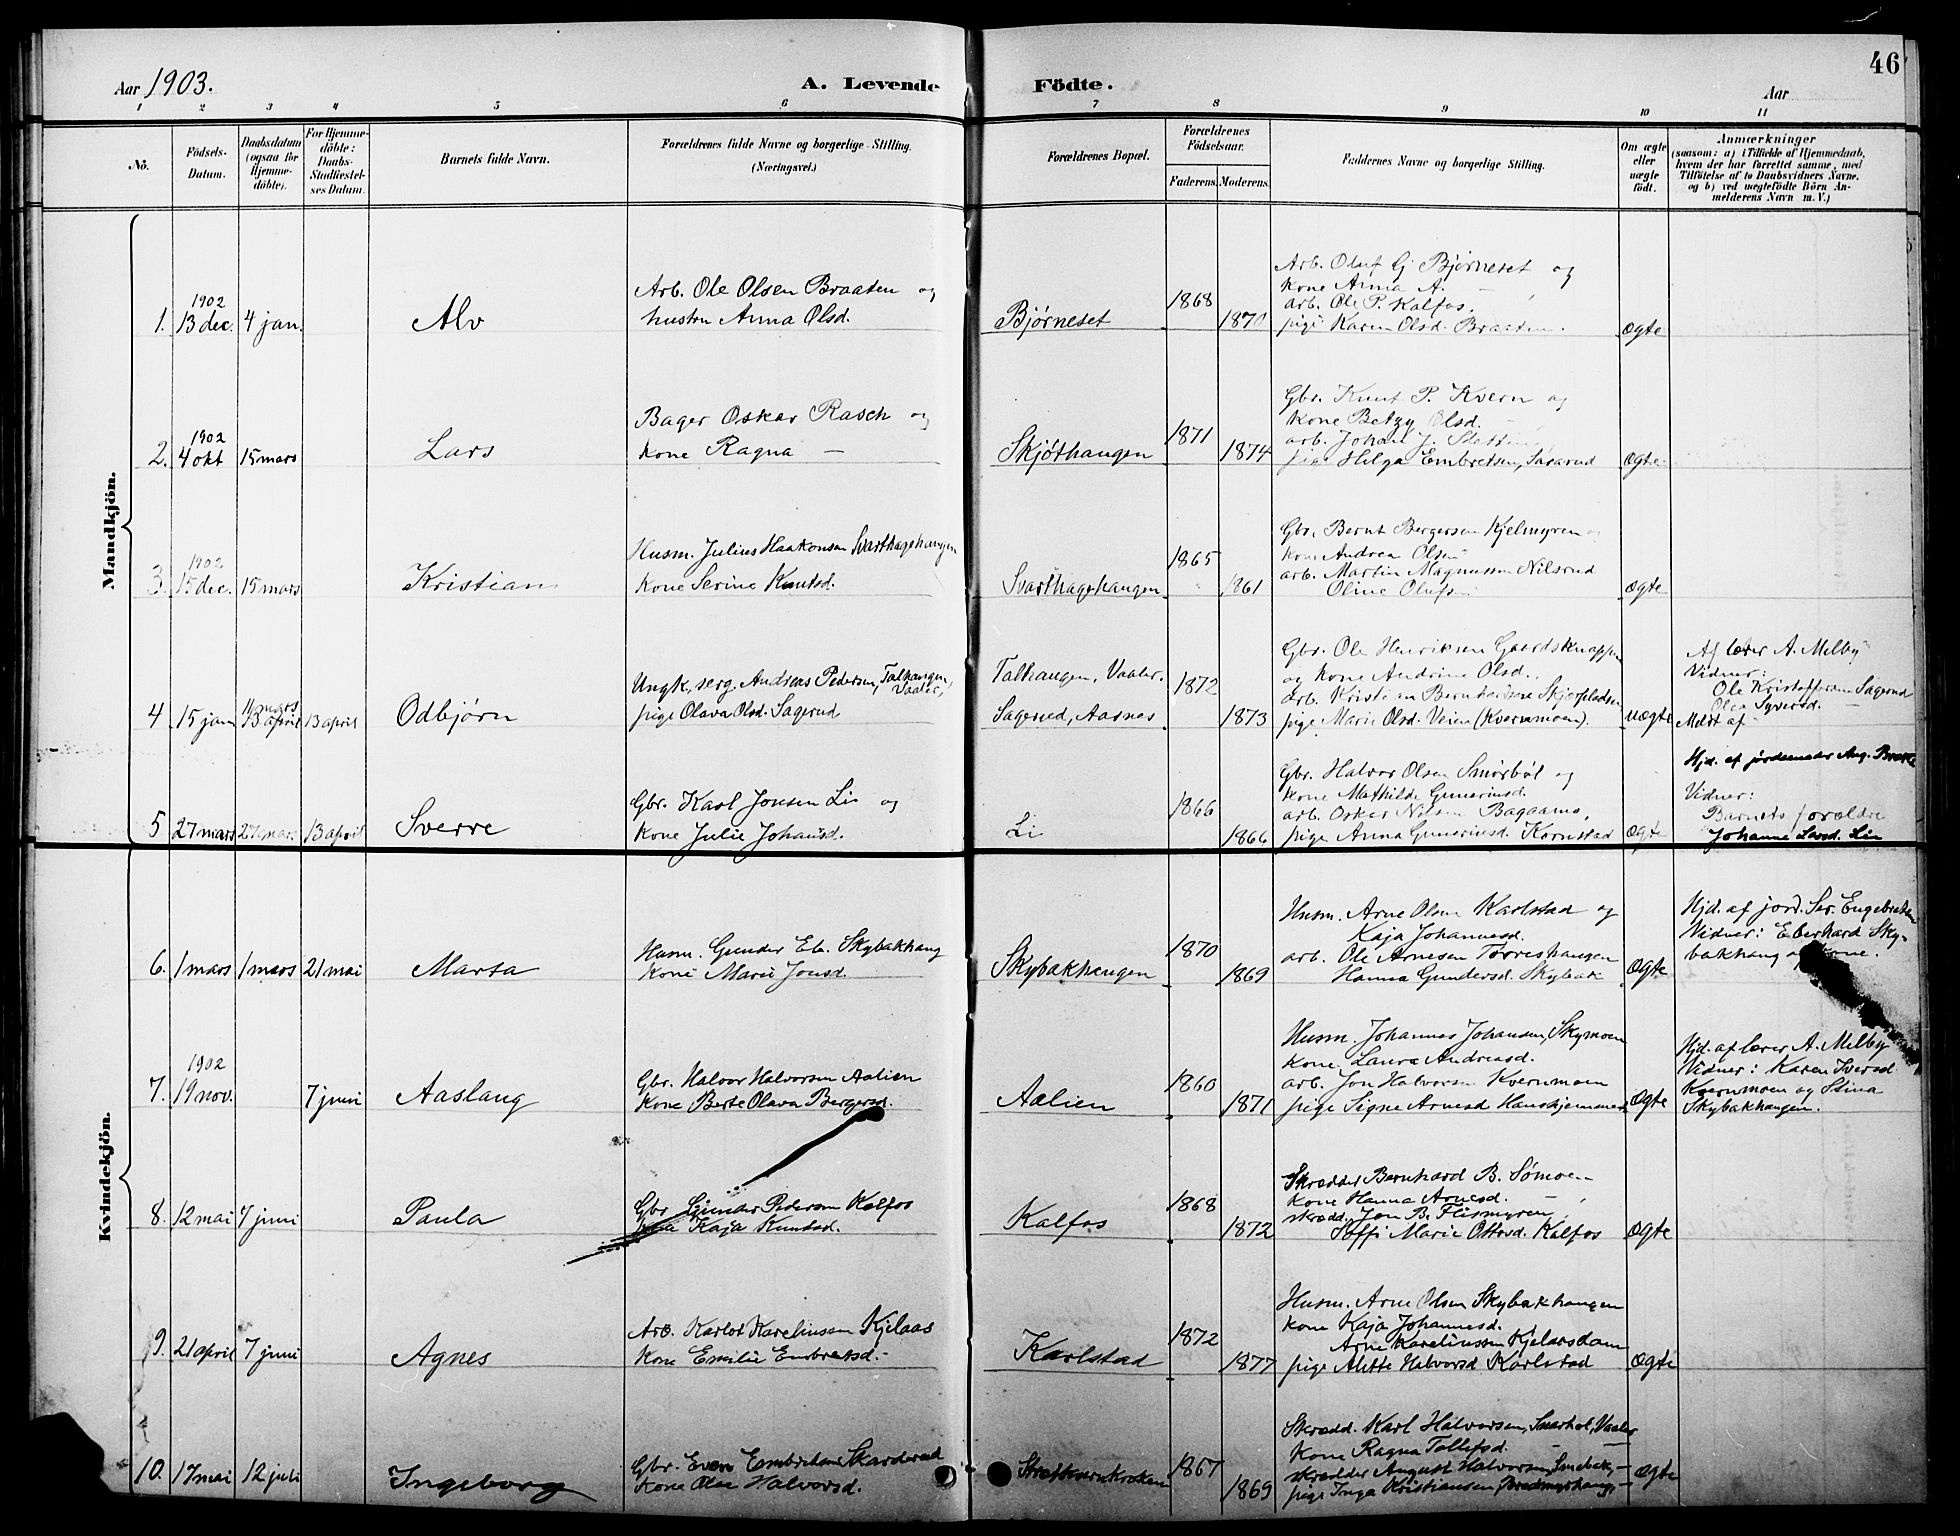 Aar 1903.
A. Levende
Födte.
46
Aar
1 2 3 4 5 6 7 8 9 10 11
Nö.
Födsels-
Datum.
Daabsdatum
(ogsaa for
Hjemme-
döbte).
For Hjemme-
döbte:
Daabs-
Stadfæstel-
ses Datum.
Barnets fulde Navn.
Forældrenes fulde Navne og borgerlige Stilling.
(Næringsvei.)
Forældrenes Bopæl.
Forældrenes
Födselsaar.
Faderens. Moderens.
Faddernes Navne og borgerlige Stilling.
Om ægte
eller
uægte
födt.
Anmærkninger
(saasom: a) i Tilfælde af Hjemmedaab,
hvem der har forrettet samme, med
Tilföielse af to Daabsvidners Navne,
og b) ved uægtefödte Börn An-
melderens Navn m. V.)
Mandkjön.
1902
1. 13 dec. 4 jan. Alv
Arb. Ole Olsen Braaten og
hustru Anna Olsd.
Bjørneset
1868
1870
Arb. Oluf Gj Bjørneset og
kone Anna A. —
arb. Ole P. Kalfos,
pige Karen Olsd. Braaten.
Ægte
1902
2. 4 okt 15 mars Lars
Bager Oskar Rasch og
kone Ragna —
Skjøthaugen
1871
1874
Gbr. Knut P. Kvern og
kone Betzy Olsd.
arb. Johan J.
pige Helga Embretsen,
Ægte
1902
3. 15 dec. 15 mars Kristian
Husm. Julius Haakonsen Svarthagehaugen
kone Serine Knutsd.
Svarthagehaugen
1865
1861
Gbr. Bernt Bergersen Kjelmyren og
kone Andrea Olsen
arb. Martin Magnussen Nilsrud
Oline Olufs
Ægte
4 15 jan 11 mars 13 april 13 april Odbjørn
Ungk, serg. Andreas Pedersen, Talhaugen,
Vaaler,
pige Olava Olsd. Sagerud
Talhaugen, Vaaler.
Sagerud, Aasnes
1872
1873
Gbr. Ole Henriksen Gaardsknappen
og kone Andrine Olsd.,
arb. Kristian Bernhardsen Skjærpladsen
pige Marie Olsd. Veien (Kvernmoen).
uægte
Af lærer A. Melby
Vidner:
Ole Kristoffersen Sagerud
Olea Syversd. —
Meldt af —
5 27 mars 27 mar. 13 april Sverre
Gbr. Karl Jonsen Li og
kone Julie Johansd.
Li
1866
1866
Gbr. Halvor Olsen Smörböl og
kone Mathilde Gunerinsd.
arb. Oskar Nilsen Bagaams,
pige Anna Gunerinsd. Kornstad
Ægte
Hjd. af jordemoder Aug.
Vidner:
Barnets forældre
Johanne Larsd. Lie
Kvindekjön.
6. 1 mars 1 mars 21 mai Marta
Husm. Gunder Eb. Skybakhaug
kone Marie Jonsd.
Skybakhaugen
1870
1869
Husm. Arne Olsen Karlstad og
Kaja Johannesd.
arb. Ole Arnesen Tørreshaugen
Hanna Gundersd. Skybak
Ægte
Hjd. af jord. Ser. Engebretsen
Vidner: Eberhard Sky-
bakhaug og kone.
1902
7. 19 nov. 7 juni Aaslaug
Gbr. Halvor Halvorsen Aalien
kone Berte Olava Bergersd.
Aalien
1860
1871
Husm. Johannes Johansen, Skymoen
kone Laura Andreasd.
arb. Jon Halvorsen Kvernmoen
pige Signe Arnesd Hanshjemmed
Ægte
Hjd. af lærer A. Melby
Vidner: Karen Iversd
Kvernmoen og Stina
Skybakhaugen.
8. 12 mai 7 juni Paula
Gbr Gunder Pedersen Kalfos
kone Kaja Knutsd.
Kalfos
1868
1872
Skrædder Bernhard B. Sømoen
kone Hanna Arnesd. —
skrædd. Jon B. Flismyren,
Soffi Marie Ottosd. Kalfos
Ægte
9. 21 april 7 juni Agnes
Arb. Karlot Kareliussen Kjelaas
kone Emilie Embretsd.
Karlstad
1872
1877
Husm. Arne Olsen Skybakhaugen
kone Kaja Johannesd.
Arne Kareliussen Kjelaasdam
pige Alette Halvorsd Karlstad
Ægte
10. 17 mai 12 juli Ingeborg
Gbr. Even Embretsen Skarderud
kone Olea Halvorsd.
1867
1869
Skrædd. Karl Halvorsen, Snarhol, Vaaler
kone Ragna Tollefsd. — —
skrædder August Halvorsen, Smebak, —
pige Inga Kristiansen,
Ægte